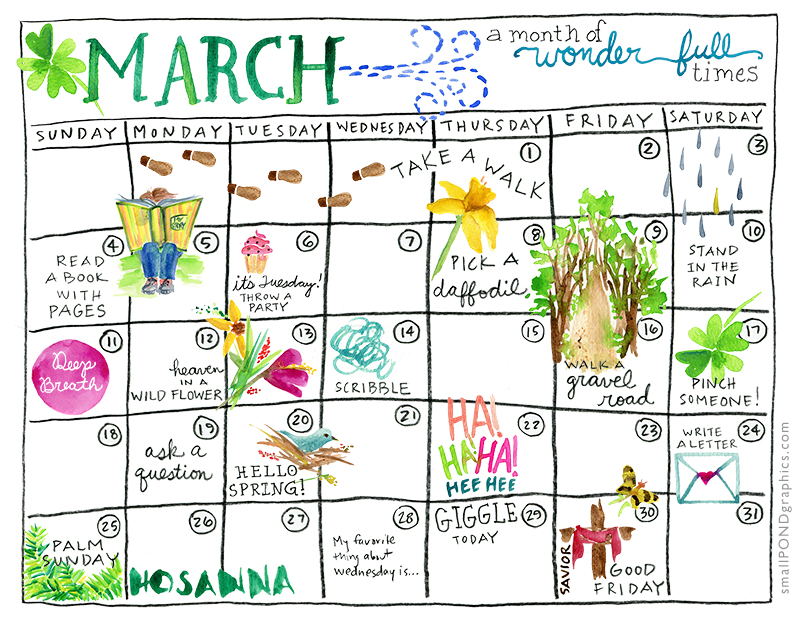 MARCH
a month of
wonder-full
times
SUNDAY MONDAY TUESDAY WEDNESDAY THURSDAY FRIDAY SATURDAY
TAKE A WALK
1 2 3
4 5 6 7 8 9 10
READ
A BOOK
WITH
PAGES
it's Tuesday!
THROW A
PARTY
PICK A
daffodil.
STAND
IN THE
RAIN
11 12 13 14 15 16 17
Deep
Breath
heaven
IN A
WILD FLOWER
SCRIBBLE
WALK A
gravel
road
PINCH
SOMEONE!
18 19 20 21 22 23 24
ask a
question
HELLO
SPRING!
HA!
HAHA!
HEE HEE
WRITE
A LETTER
25 26 27 28 29 30 31
PALM
SUNDAY
HOSANNA
My favorite
thing about
wednesday is...
GIGGLE
TODAY
SAVIOR
GOOD
FRIDAY
smallPONDgraphics.com